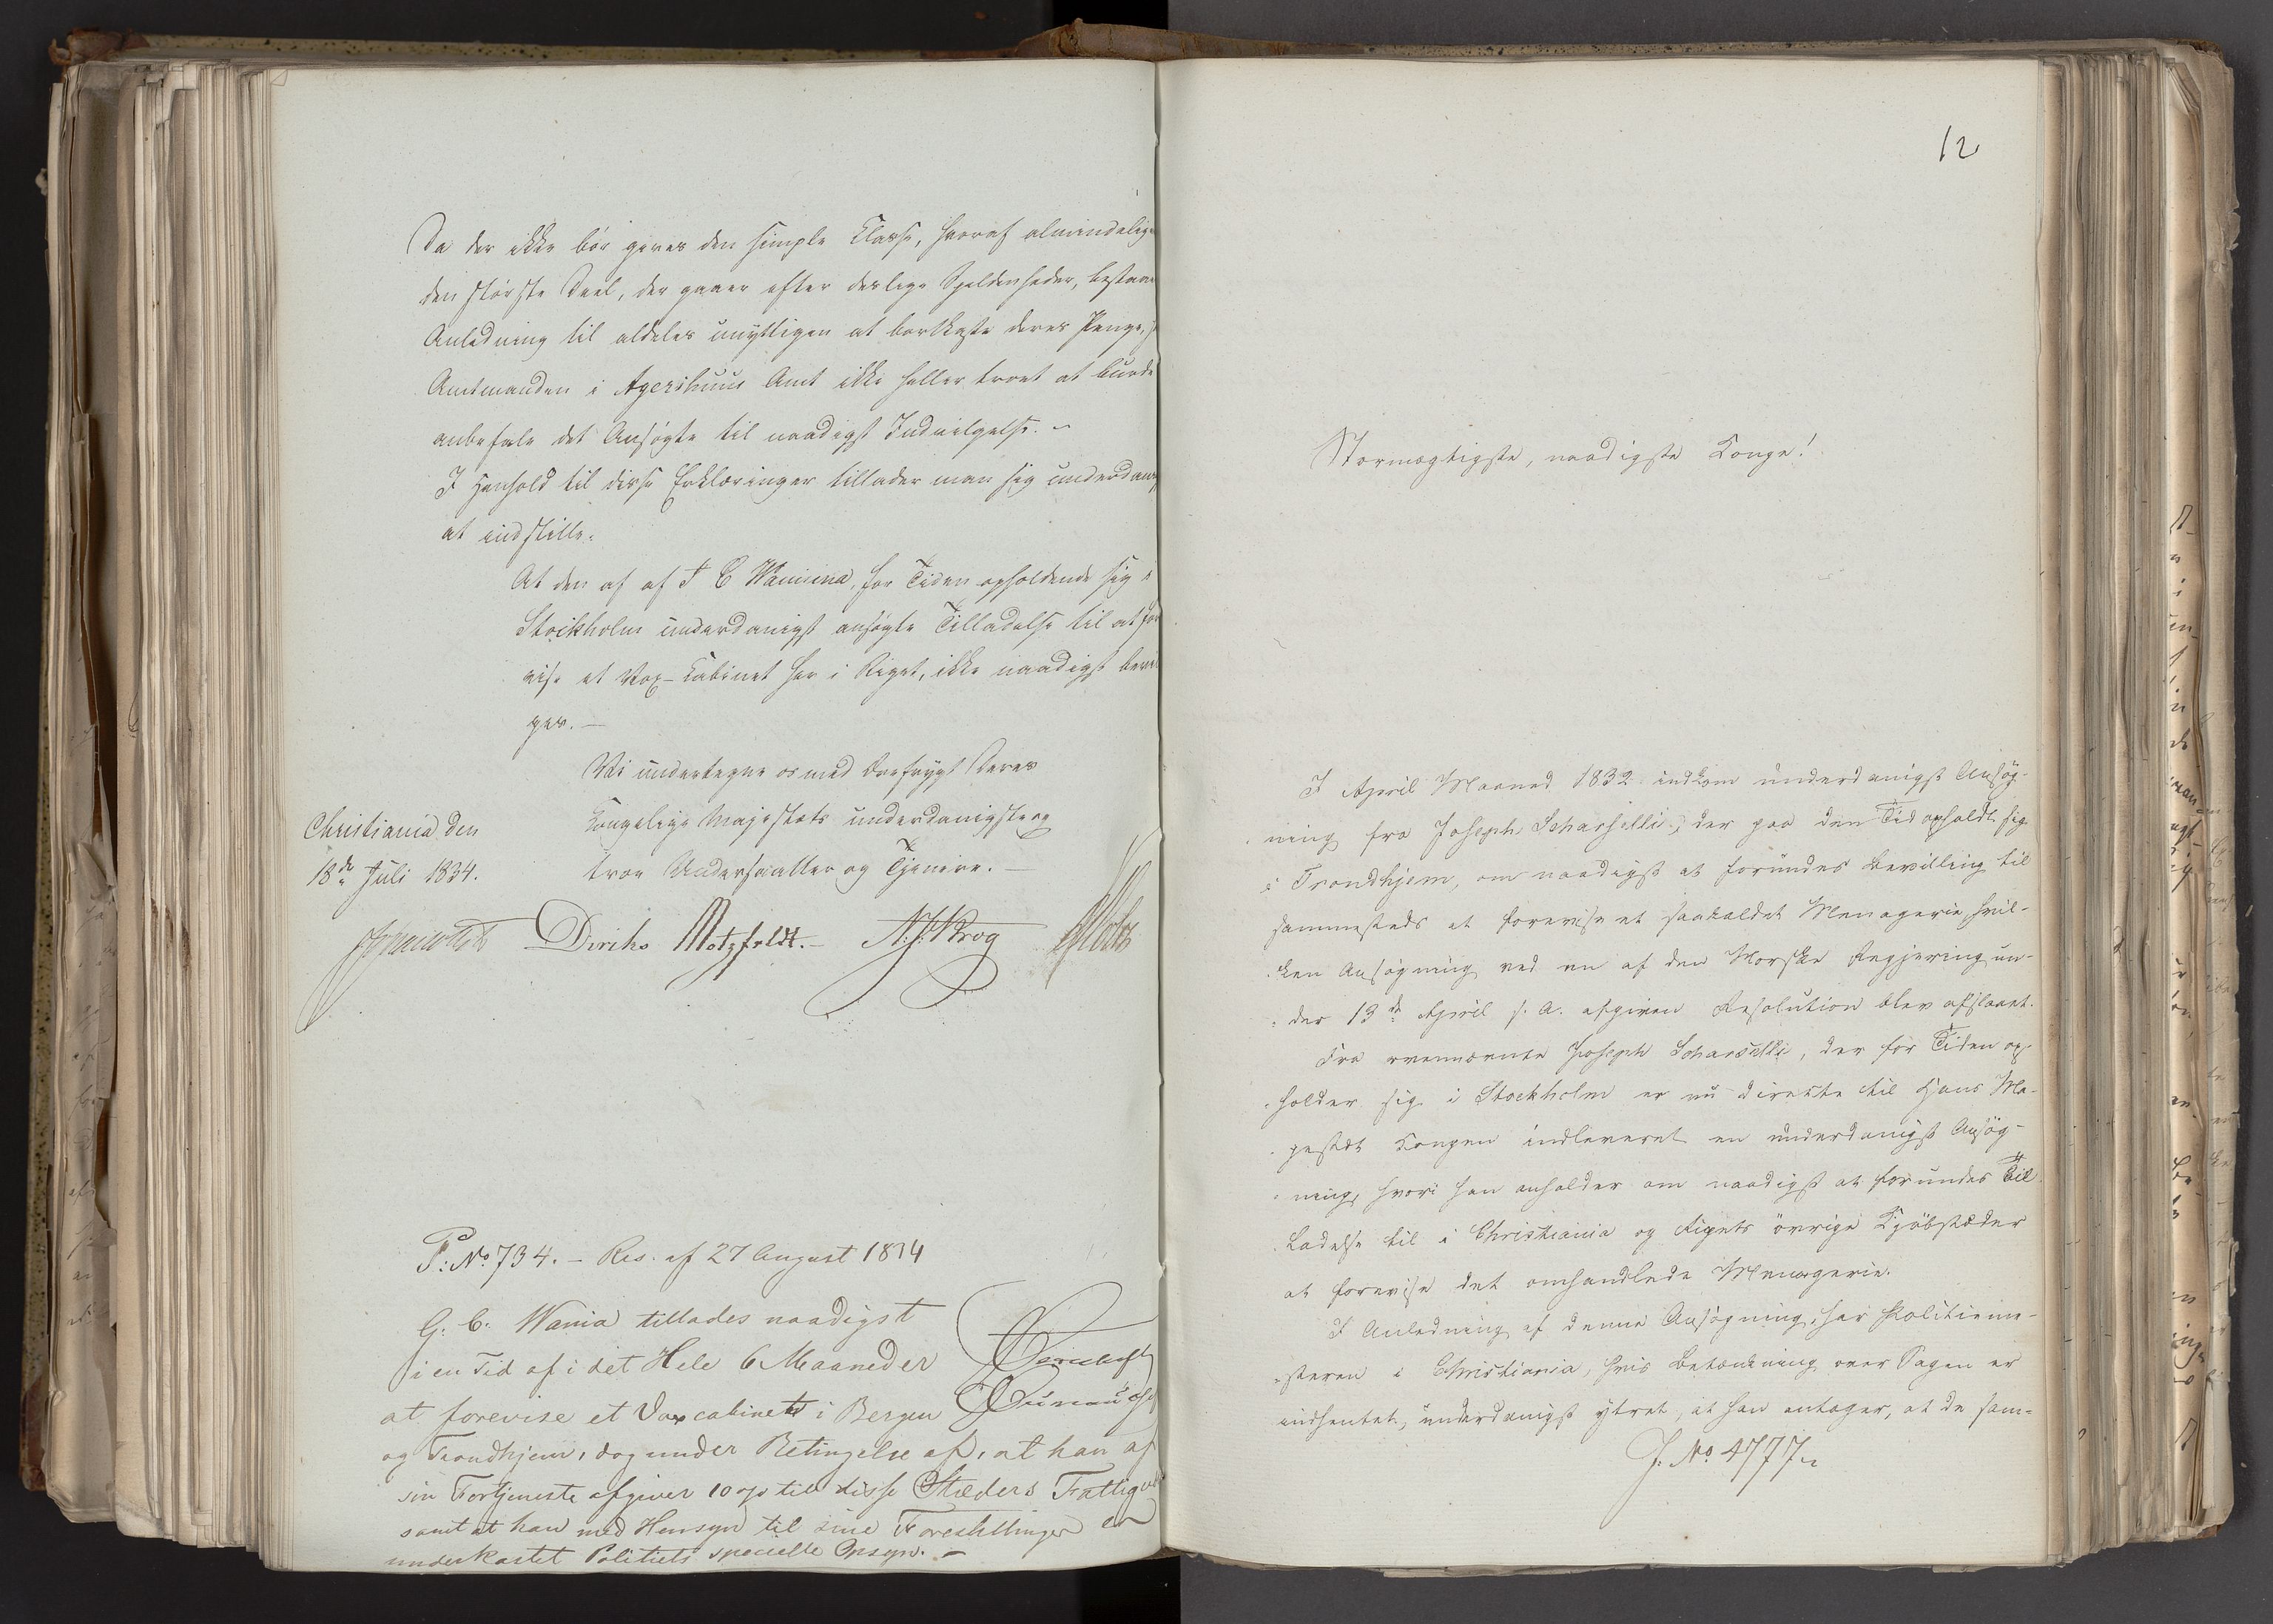 Da der ikke bör gives den simple Klasse, hvoraf almindelig
den störste Deel, der gaaer efter deslige Sjeldenheder, bestaae
Anledning til aldeles unyttigen at bortkaste deres Penge,
Amtmanden i Agershuus Amt ikke heller troet at burde
anbefale det Ansögte til naadigst Indvilgelse. –
I Henhold til disse Erklæringer tillader man sig underdan
at indstille:
At den af af J C Wanina, for Tiden opholdende sig i
Stockholm underdanigst ansögte Tilladelse til at for
vise et Vox-Cabinet her i Riget, ikke naadigst bevil
ges. –
Vi undertegne os med Ærefrygt Deres
Kongelige Majestæts underdanigste og
troe Undersaatter og Tjenere. –
Christiania den
18de Juli 1834.
Diriks Motzfeldt. – N. J. Krog
P: No 734. – Res. af 27 August 1834
G. C. Wania tillades naadigst
i en Tid af i det Hele 6 Maaneder
at forevise et Voxcabinet i Bergen
og Trondhjem, dog under Betingelse af, at han af
sin Fortjeneste afgiver 10 % til disse Stæders Fattig
samt at han med Hensyn til sine Forestillinger er
underkastet Politiets specielle Opsyn. –
12
Stormægtigste, naadigste Konge!
I April Maaned 1832 indkom underdanigst Ansög-
ning fra Joseph Scharselli, der paa den Tid opholdt sig
i Trondhjem, om naadigst at forundes Bevilling til
sammesteds at forevise et saakaldet Menagerie, hvil-
ken Ansögning ved en af den Norske Regjering un-
der 13de April s. A. afgiven Resolution blev afslaaet.
Fra ovennævnte Joseph Scharselli, der for Tiden op-
holder sig i Stockholm er nu directe til Hans Ma-
jestæt Kongen indleveret en underdanigst Ansög-
ning, hvori han anholder om naadigst at forundes Til
ladelse til i Christiania og Rigets övrige Kjöbstæder
at forevise det omhandlede Menagerie.
I Anledning af denne Ansögning har Politieme-
steren i Christiania, hvis Betænkning over Sagen er
indhentet, underdanigst ytret, at han antager, at de sam-
J. No 4777